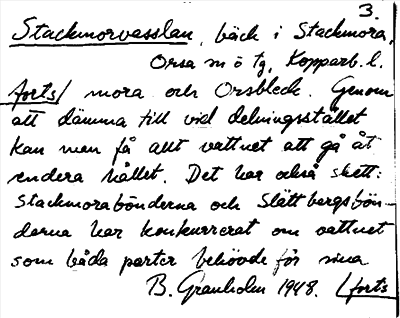 3.
Stackmorvasslan, bäck i Stackmora,
Orsa sn ö tg, Kopparb. l.
forts/ mora och Orsbleck. Genom
att dämma till vid delningsstället
kan man få allt vattnet att gå åt
endera hållet. Det har också skett:
Stackmorabönderna och Slättbergsbön-
derna har konkurrerat om vattnet
som båda parter behövde för sina
B. Granholm 1948. /forts